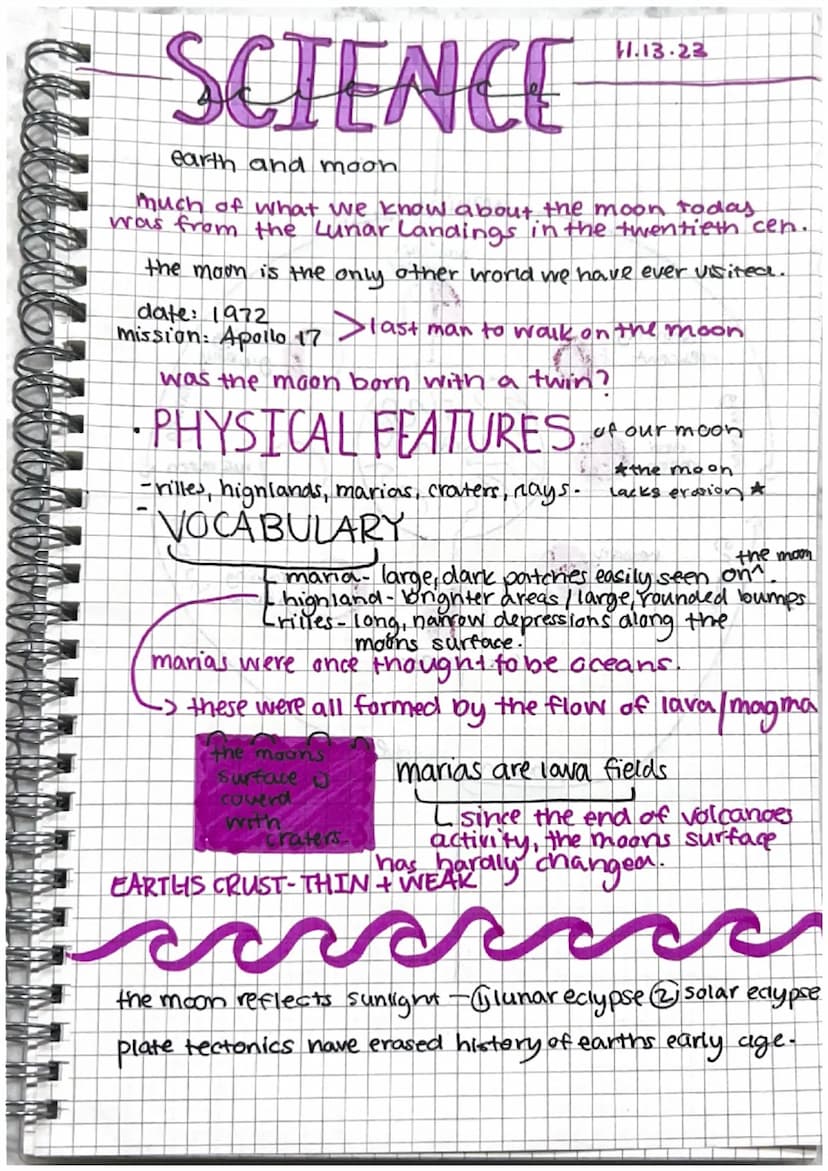 SCIENCE
science
11.13.23
earth and moon
much of what we know about the moon today
was from the Lunar Landings in the twentieth cen.
the moon is the only other world we have ever visited.
date: 1972
mission: Apollo 17 > last man to walk on the moon
was the moon born with a twin?
• PHYSICAL FEATURES of our moon
*the moon
lacks erosion*
-rilles, highlands, marias, craters, rays-
- VOCABULARY
maria- large, dark patches easily seen on^. the moon
highland- brighter areas / large, rounded bumps
rilles- long, narrow depressions along the
moons surface.
marias were once thought to be oceans.
-> these were all formed by the flow of lava/magma
the moons
surface is
coverd
with
craters.
marias are lava fields
since the end of volcanoes
activity, the moons surface
has hardly changed.
EARTHS CRUST- THIN + WEAK
the moon reflects sunlight - ① lunar eclypse ② solar eclypse
plate tectonics have erased history of earths early age.